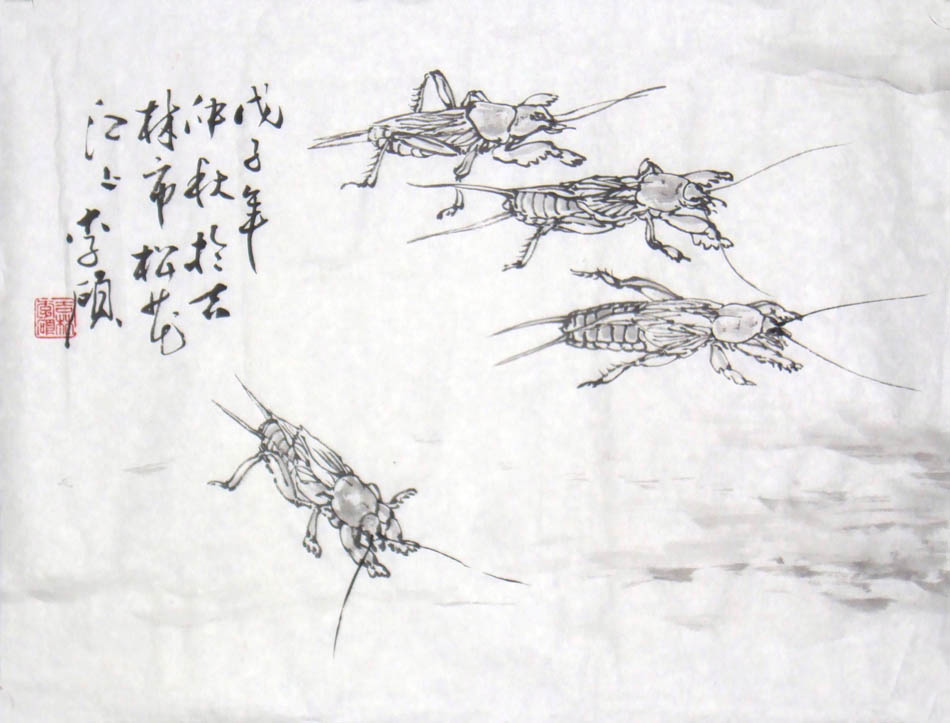 戊子年
仲秋於吉
林市松花
江上李硕